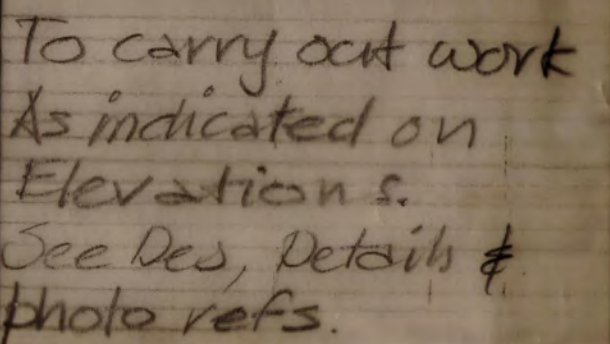 To carry out work
As indicated on
Elevations.
See Des, Details &
photo refs.